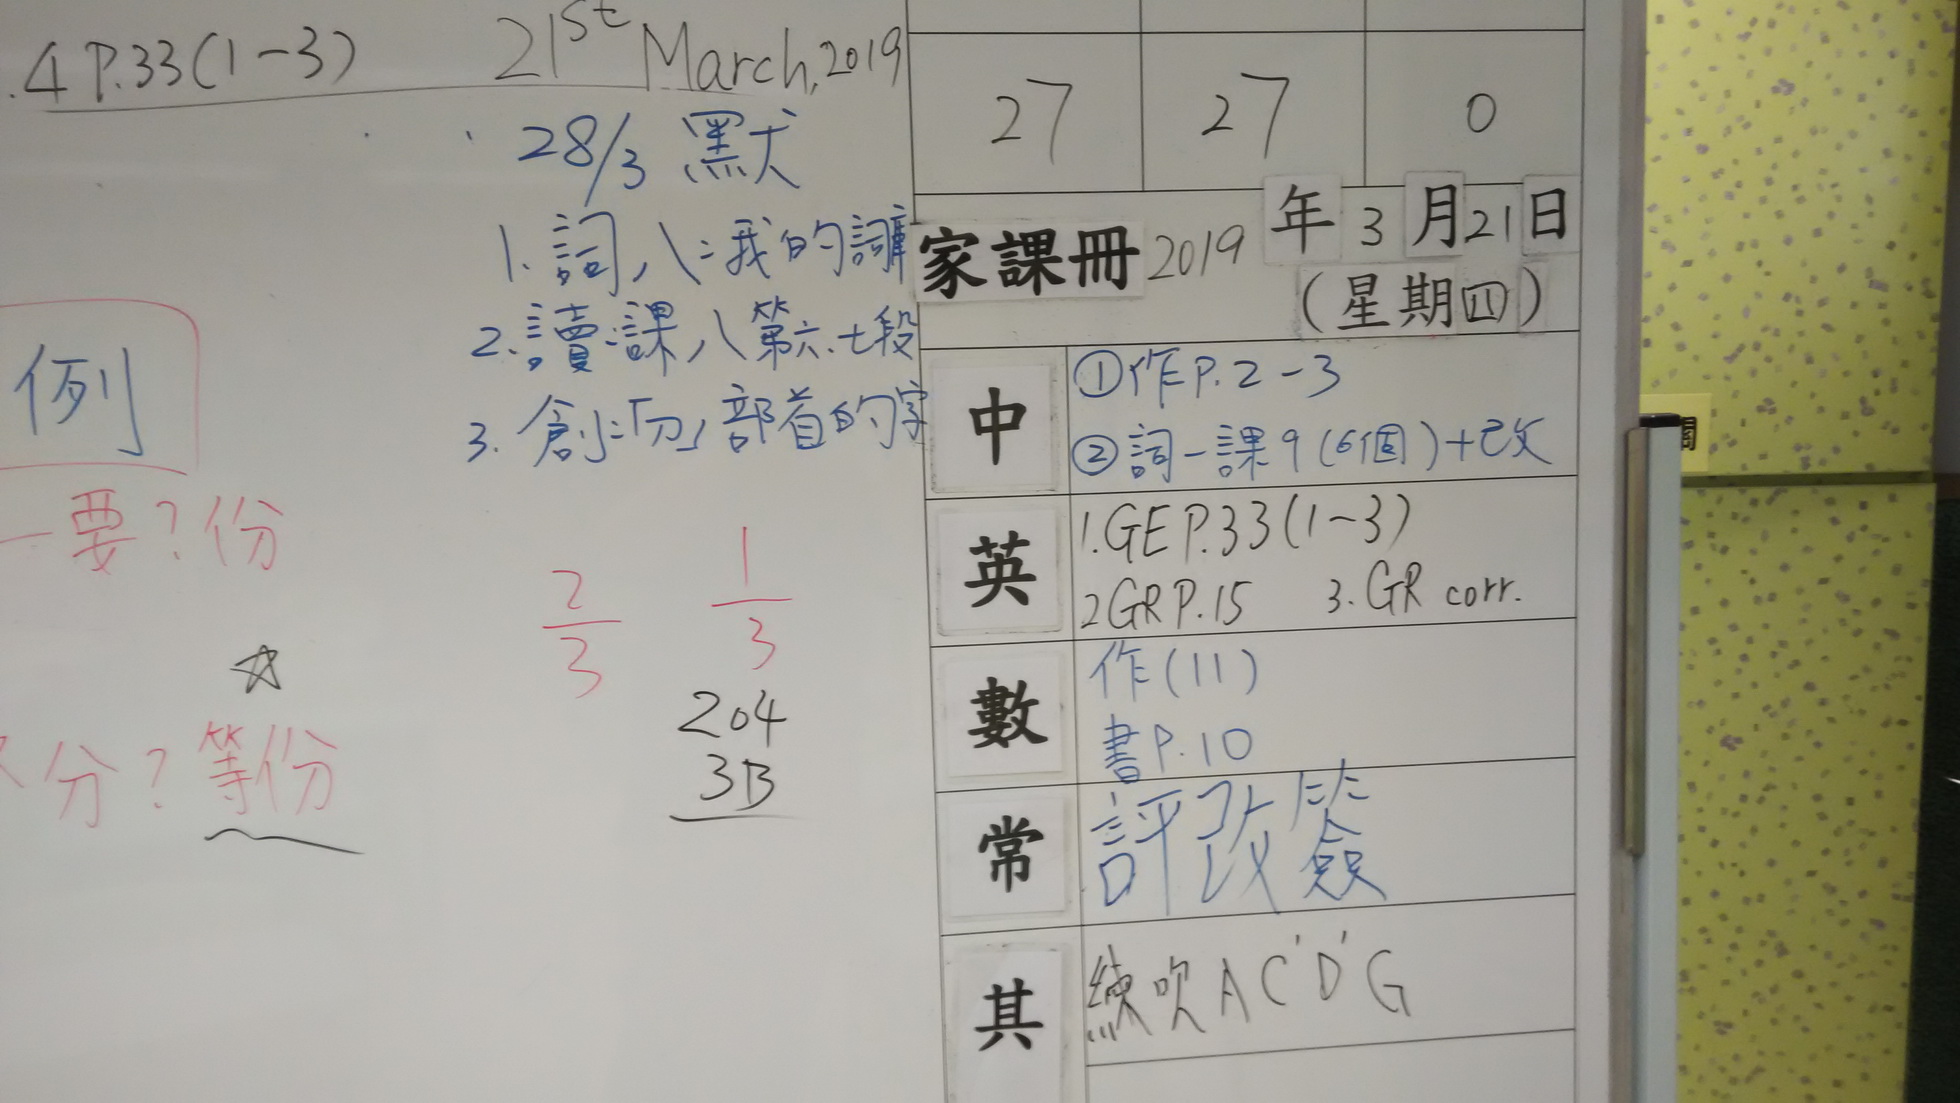 .4 P.33(1-3)
21st March, 2019
28/3 默
1. 詞八:我的謝
2. 讀:課八第六.七段
3. 創:「勹」部首的字
例
一要?份
2/3
1/3
分?等份
204
3B
27 27 0
家課冊 2019 年 3 月 21 日
(星期四)
中 ①作P.2-3
②詞-課9(6個)+改
英 1.GE P.33(1-3)
2 GR P.15 3. GR corr.
數 作(11)
書P.10
常 評改簽
其 練吹 A C' D' G